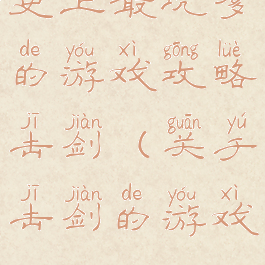 史上最坑爹
de yóu xì gōng lüè
的游戏攻略
jī jiàn guān yú
击剑(关于
jī jiàn de yóu xì
击剑的游戏